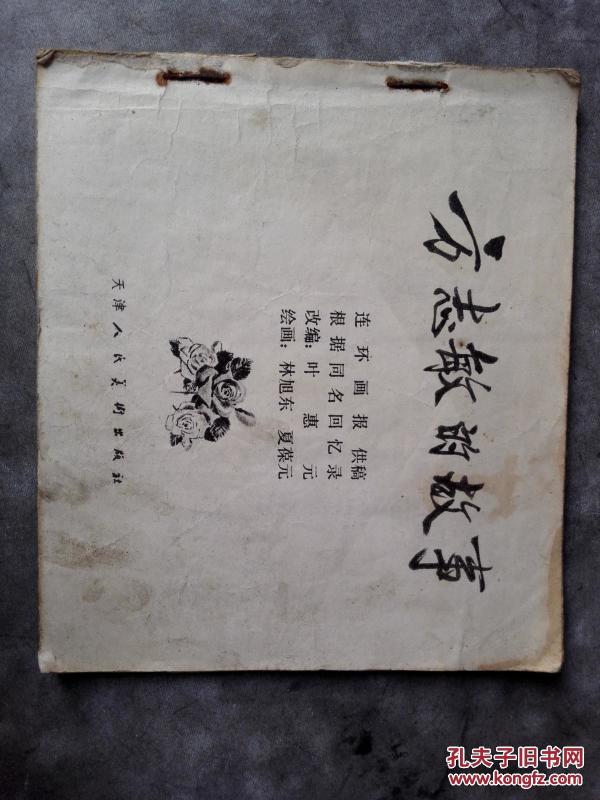 方志敏的故事
连环画报供稿
根据同名回忆录
改编：叶惠元
绘画：林旭东 夏葆元
天津人民美術出版社
孔夫子旧书网
www.kongfz.com